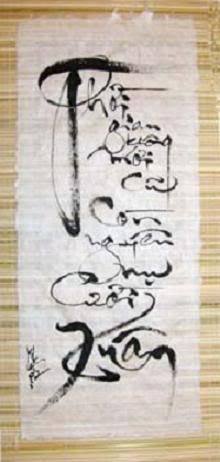 Thời
gian
không
mới
cũ
Còn
nguyên
nụ
Cười
Xuân